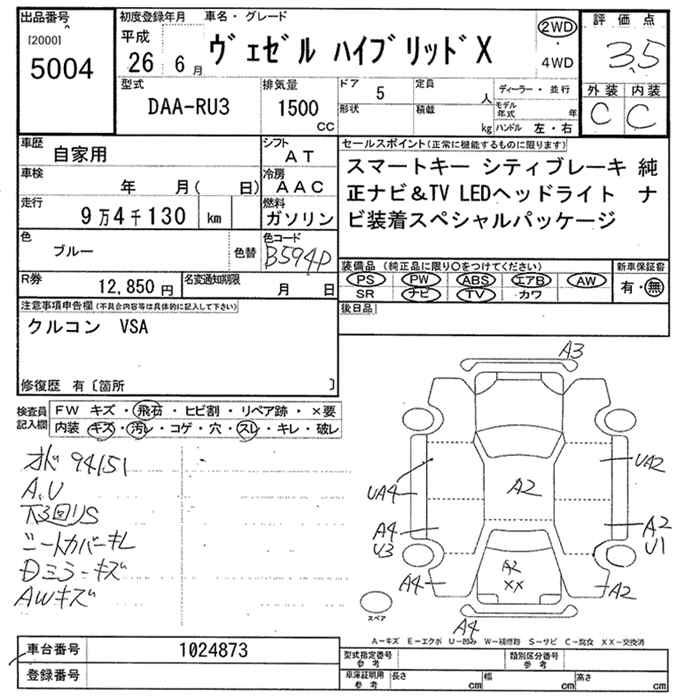 出品番号
[2000]
5004
初度登録年月
平成
26年6月
車名・グレード
ヴェゼル ハイブリッドX
2WD
・
4WD
評価点
3.5
外装 内装
C C
型式
DAA-RU3
排気量
1500
cc
ドア 5
形状
定員 人
積載 kg
ディーラー・並行
モデル年式 年
ハンドル 左・右
車歴
自家用
シフト
AT
車検
年 月( 日)
冷房
AAC
走行
9万4千130 km
燃料
ガソリン
色
ブルー
色替
色コード
B594P
R券
12,850円
名変通知期限
月 日
セールスポイント(正常に機能するものに限ります)
スマートキー シティブレーキ 純
正ナビ&TV LEDヘッドライト ナ
ビ装着スペシャルパッケージ
装備品(純正品に限り○をつけてください)
PS PW ABS エアB AW
SR ナビ TV カワ
新車保証書
有・無
後日品
注意事項申告欄(不具合内容等は具体的に記入して下さい)
クルコン VSA
修復歴 有〔箇所 〕
検査員
記入欄
FW キズ・飛石・ヒビ割・リペア跡・×要
内装 キズ・汚レ・コゲ・穴・スレ・キレ・破レ
オド 94151
A.U
下3回リS
シートカバーキレ
Dミラーキズ
AWキズ
A3
UA2
UA4
A2
A4
U3
A2
U1
A2
XX
A4
A2
A4
スペア
A−キズ E−エクボ U−凹み W−補修跡 S−サビ C−腐食 XX−交換済
車台番号 1024873
登録番号
型式指定番号
参考
類別区分番号
参考
車庫証明用
参考
長さ cm
幅 cm
高さ cm